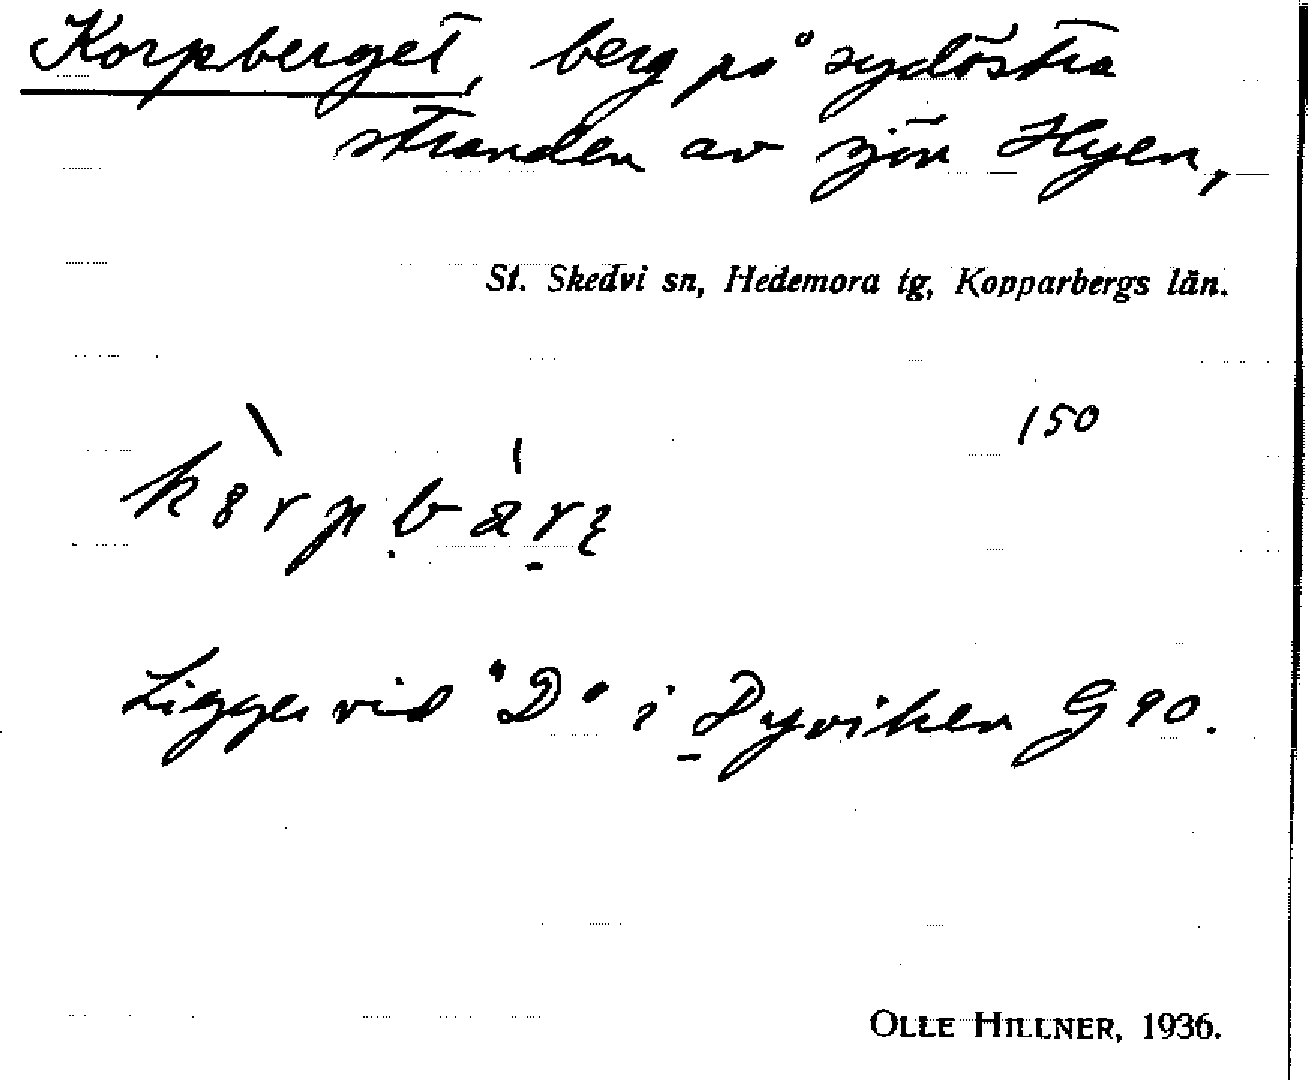 Korpberget, berg på sydöstra
stranden av sjön Hyen,
St. Skedvi sn, Hedemora tg, Kopparbergs län.
150
Ligger vid "D" i Dyviken G 90.
OLLE HILLNER, 1936.